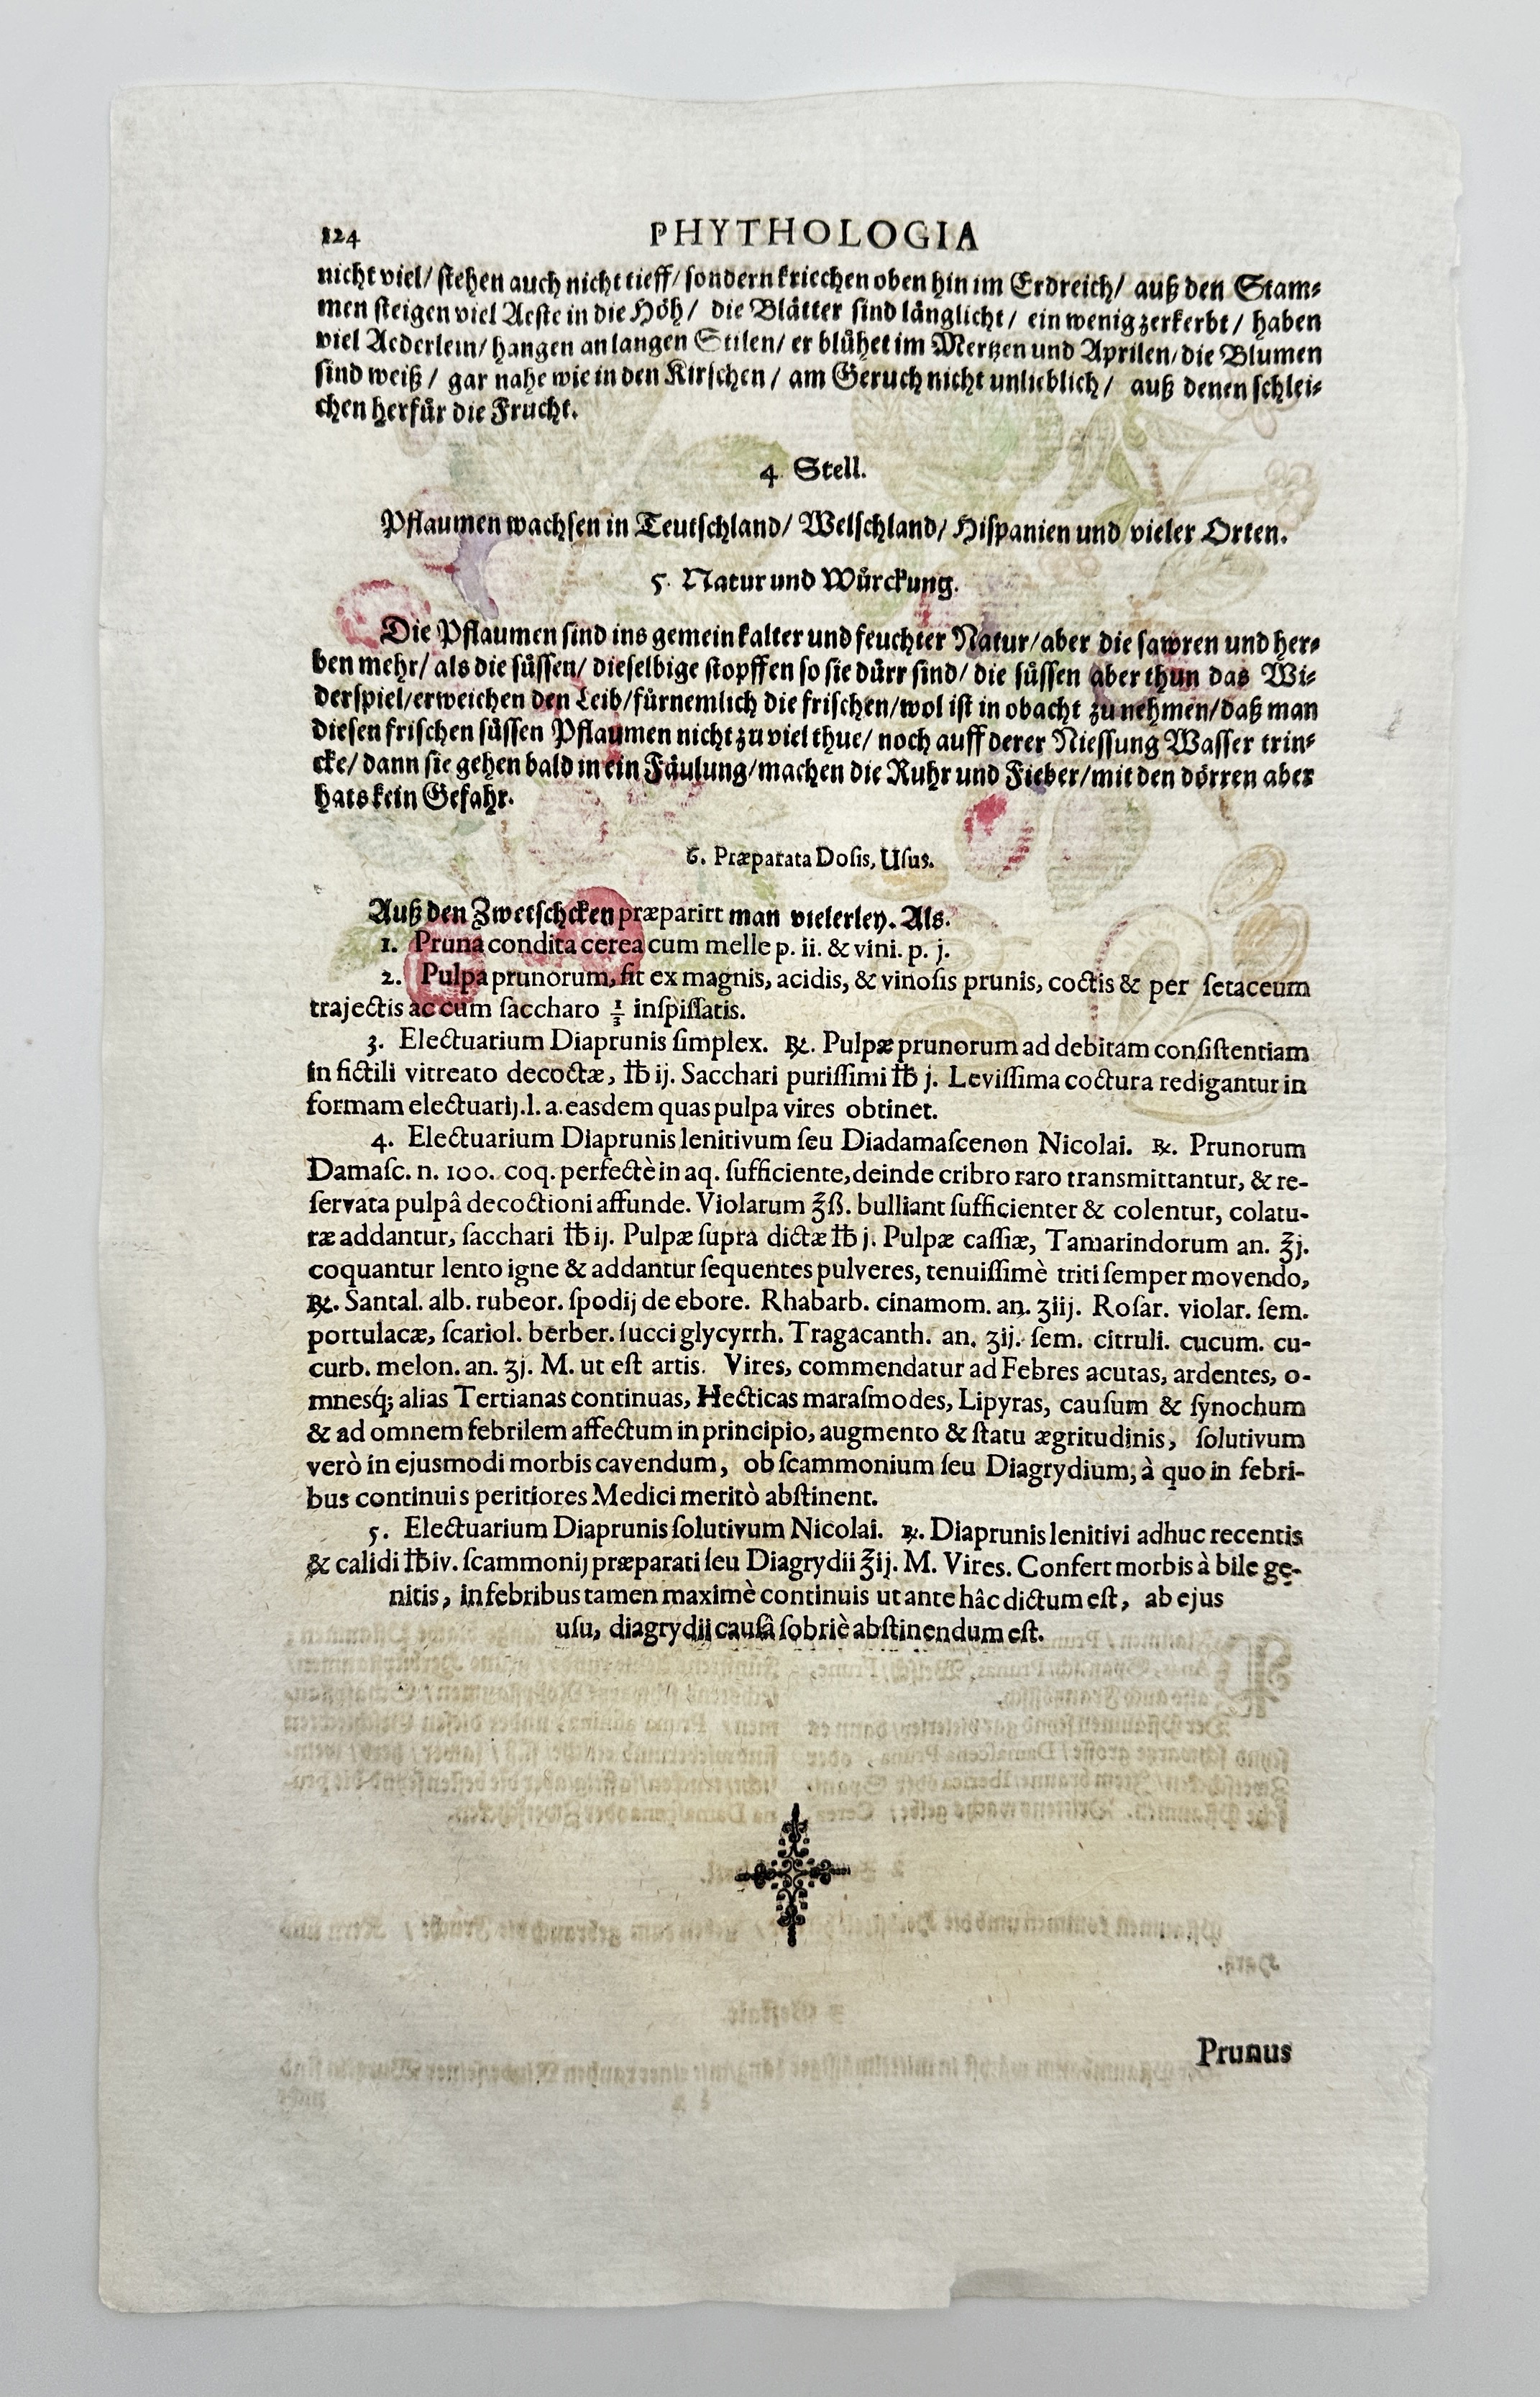 124 PHYTHOLOGIA
nicht viel/ stehen auch nicht tieff/ sondern kriechen oben hin im Erdreich/ auß den Stam-
men steigen viel Aeste in die Höh/ die Blätter sind länglicht/ ein wenig zerkerbt/ haben
viel Aederlein/ hangen an langen Stilen/ er blühet im Mertzen und Aprilen/ die Blumen
sind weiß/ gar nahe wie in den Kirschen/ am Geruch nicht unlieblich/ auß denen schlei-
chen herfür die Frucht.
4 Stell.
Pflaumen wachsen in Teutschland/ Welschland/ Hispanien und vieler Orten.
5. Natur und Würckung.
Die Pflaumen sind ins gemein kalter und feuchter Natur/ aber die sawren und her-
ben mehr/ als die süssen/ dieselbige stopffen so sie dürr sind/ die süssen aber thun das Wi-
derspiel/ erweichen den Leib/ fürnemlich die frischen/ wol ist in obacht zu nehmen/ daß man
diesen frischen süssen Pflaumen nicht zu viel thue/ noch auff derer Niessung Wasser trin-
cke/ dann sie gehen bald in ein Fäulung/ machen die Ruhr und Fieber/ mit den dörren aber
hats kein Gefahr.
6. Præparata Dosis, Usus.
Auß den Zwetschcken præparirt man vielerley. Als.
1. Pruna condita cerea cum melle p. ii. & vini. p. j.
2. Pulpa prunorum, fit ex magnis, acidis, & vinosis prunis, coctis & per setaceum
trajectis ac cum saccharo 1/3 inspissatis.
3. Electuarium Diaprunis simplex. ℞. Pulpæ prunorum ad debitam consistentiam
in fictili vitreato decoctæ, ℔ ij. Sacchari purissimi ℔ j. Levissima coctura redigantur in
formam electuarij. l. a. easdem quas pulpa vires obtinet.
4. Electuarium Diaprunis lenitivum seu Diadamascenon Nicolai. ℞. Prunorum
Damasc. n. 100. coq. perfectè in aq. sufficiente, deinde cribro raro transmittantur, & re-
servata pulpâ decoctioni affunde. Violarum ℥ß. bulliant sufficienter & colentur, colatu-
ræ addantur, sacchari ℔ ij. Pulpæ supra dictæ ℔ j. Pulpæ cassiæ, Tamarindorum an. ℥j.
coquantur lento igne & addantur sequentes pulveres, tenuissimè triti semper movendo,
℞. Santal. alb. rubeor. spodij de ebore. Rhabarb. cinamom. an. ʒiij. Rosar. violar. sem.
portulacæ, scariol. berber. succi glycyrrh. Tragacanth. an. ʒij. sem. citruli. cucum. cu-
curb. melon. an. ʒj. M. ut est artis. Vires, commendatur ad Febres acutas, ardentes, o-
mnesq́; alias Tertianas continuas, Hecticas marasmodes, Lipyras, causum & synochum
& ad omnem febrilem affectum in principio, augmento & statu ægritudinis, solutivum
verò in ejusmodi morbis cavendum, ob scammonium seu Diagrydium, à quo in febri-
bus continuis peritiores Medici meritò abstinent.
5. Electuarium Diaprunis solutivum Nicolai. ℞. Diaprunis lenitivi adhuc recentis
& calidi ℔ iv. scammonij præparati seu Diagrydii ℥ij. M. Vires. Confert morbis à bile ge-
nitis, in febribus tamen maximè continuis ut ante hâc dictum est, ab ejus
usu, diagrydii causâ sobriè abstinendum est.
Prunus